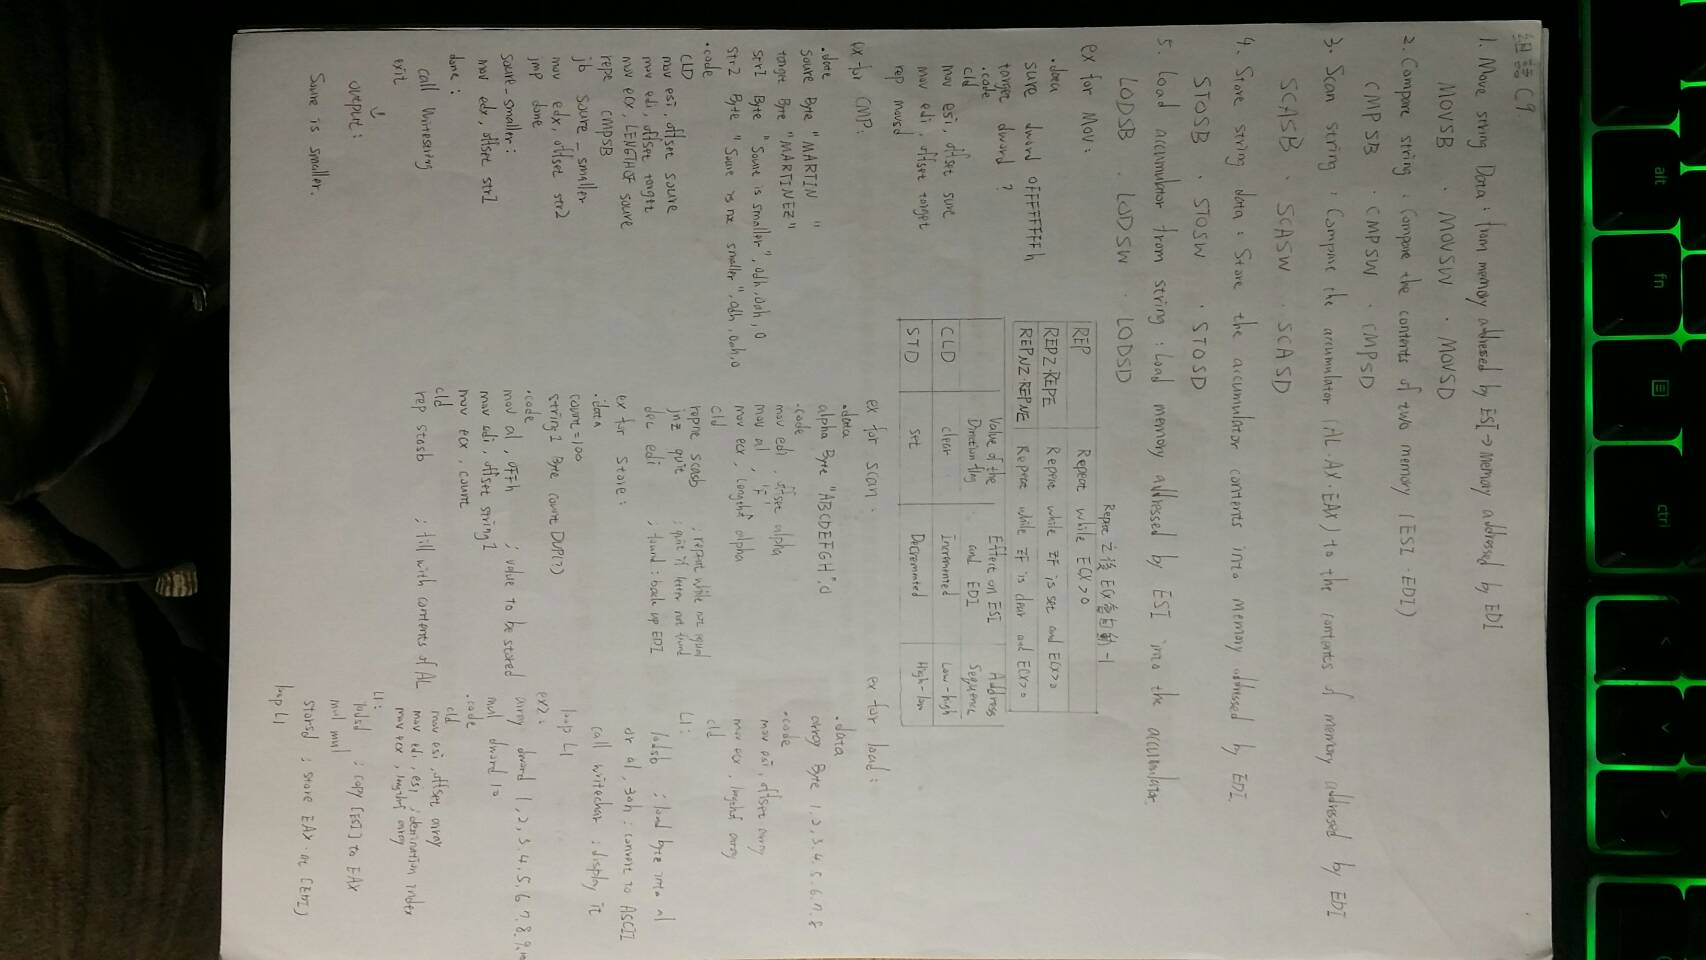 組語 C9
1. Move string Data : from memory addressed by ESI → Memory addressed by EDI
MOVSB . MOVSW . MOVSD
2. Compare string : Compare the contents of two memory (ESI . EDI)
CMPSB . CMPSW . CMPSD
3. Scan string : Compare the accumulator (AL . AX . EAX) to the contents of memory addressed by EDI
SCASB . SCASW . SCASD
4. Store string data : Store the accumulator contents into memory addressed by EDI.
STOSB . STOSW . STOSD
5. Load accumulator from string : Load memory addressed by ESI into the accumulator.
LODSB . LODSW . LODSD
ex for MOV :
.data
sure dword 0FFFFFFFFh
target dword ?
.code
cld
mov esi, offset sure
mov edi, offset target
rep movsd
Repeat 之後 ECX會自動 -1
REP Repeat while ECX > 0
REPZ.REPE Repeat while ZF is set and ECX>0
REPNZ.REPNE Repeat while ZF is clear and ECX>0
Value of the Direction flag Effect on ESI and EDI Address Sequence
CLD clear incremented Low-high
STD set Decremented High-low
ex for CMP :
.data
soure Byte "MARTIN "
target Byte "MARTINEZ"
str1 Byte "Soure is smaller", 0dh, 0ah, 0
str2 Byte "Soure is not smaller", 0dh, 0ah, 0
.code
CLD
mov esi, offset soure
mov edi, offset target
mov ecx, LENGTHOF soure
repe CMPSB
jb soure_smaller
mov edx, offset str2
jmp done
soure_smaller :
mov edx, offset str1
done :
call Writestring
exit
output :
Soure is smaller.
ex for scan :
.data
alpha Byte "ABCDEFGH",0
.code
mov edi, offset alpha
mov al, 'F'
mov ecx, lengthof alpha
cld
repne scasb ; repeat while not equal
jnz quit ; quit if letter not found
dec edi ; found : back up EDI
ex for store :
.data
count = 100
string1 Byte count DUP(?)
.code
mov al, 0FFh ; value to be stored
mov edi, offset string1
mov ecx, count
cld
rep stosb ; fill with contents of AL
ex for load :
.data
array Byte 1,2,3,4,5,6,7,8
.code
mov esi, offset array
mov ecx, lengthof array
cld
L1:
lodsb ; load byte into al
or al, 30h ; convert to ASCII
call writechar ; display it
loop L1
ex2 :
array dword 1,2,3,4,5,6,7,8,9,10
mul dword 10
.code
cld
mov esi, offset array
mov edi, esi ; destination index
mov ecx, lengthof array
L1:
lodsd ; copy [ESI] to EAX
mul mul
stosd ; store EAX at [EDI]
loop L1
alt
fn
ctrl
<
^
>